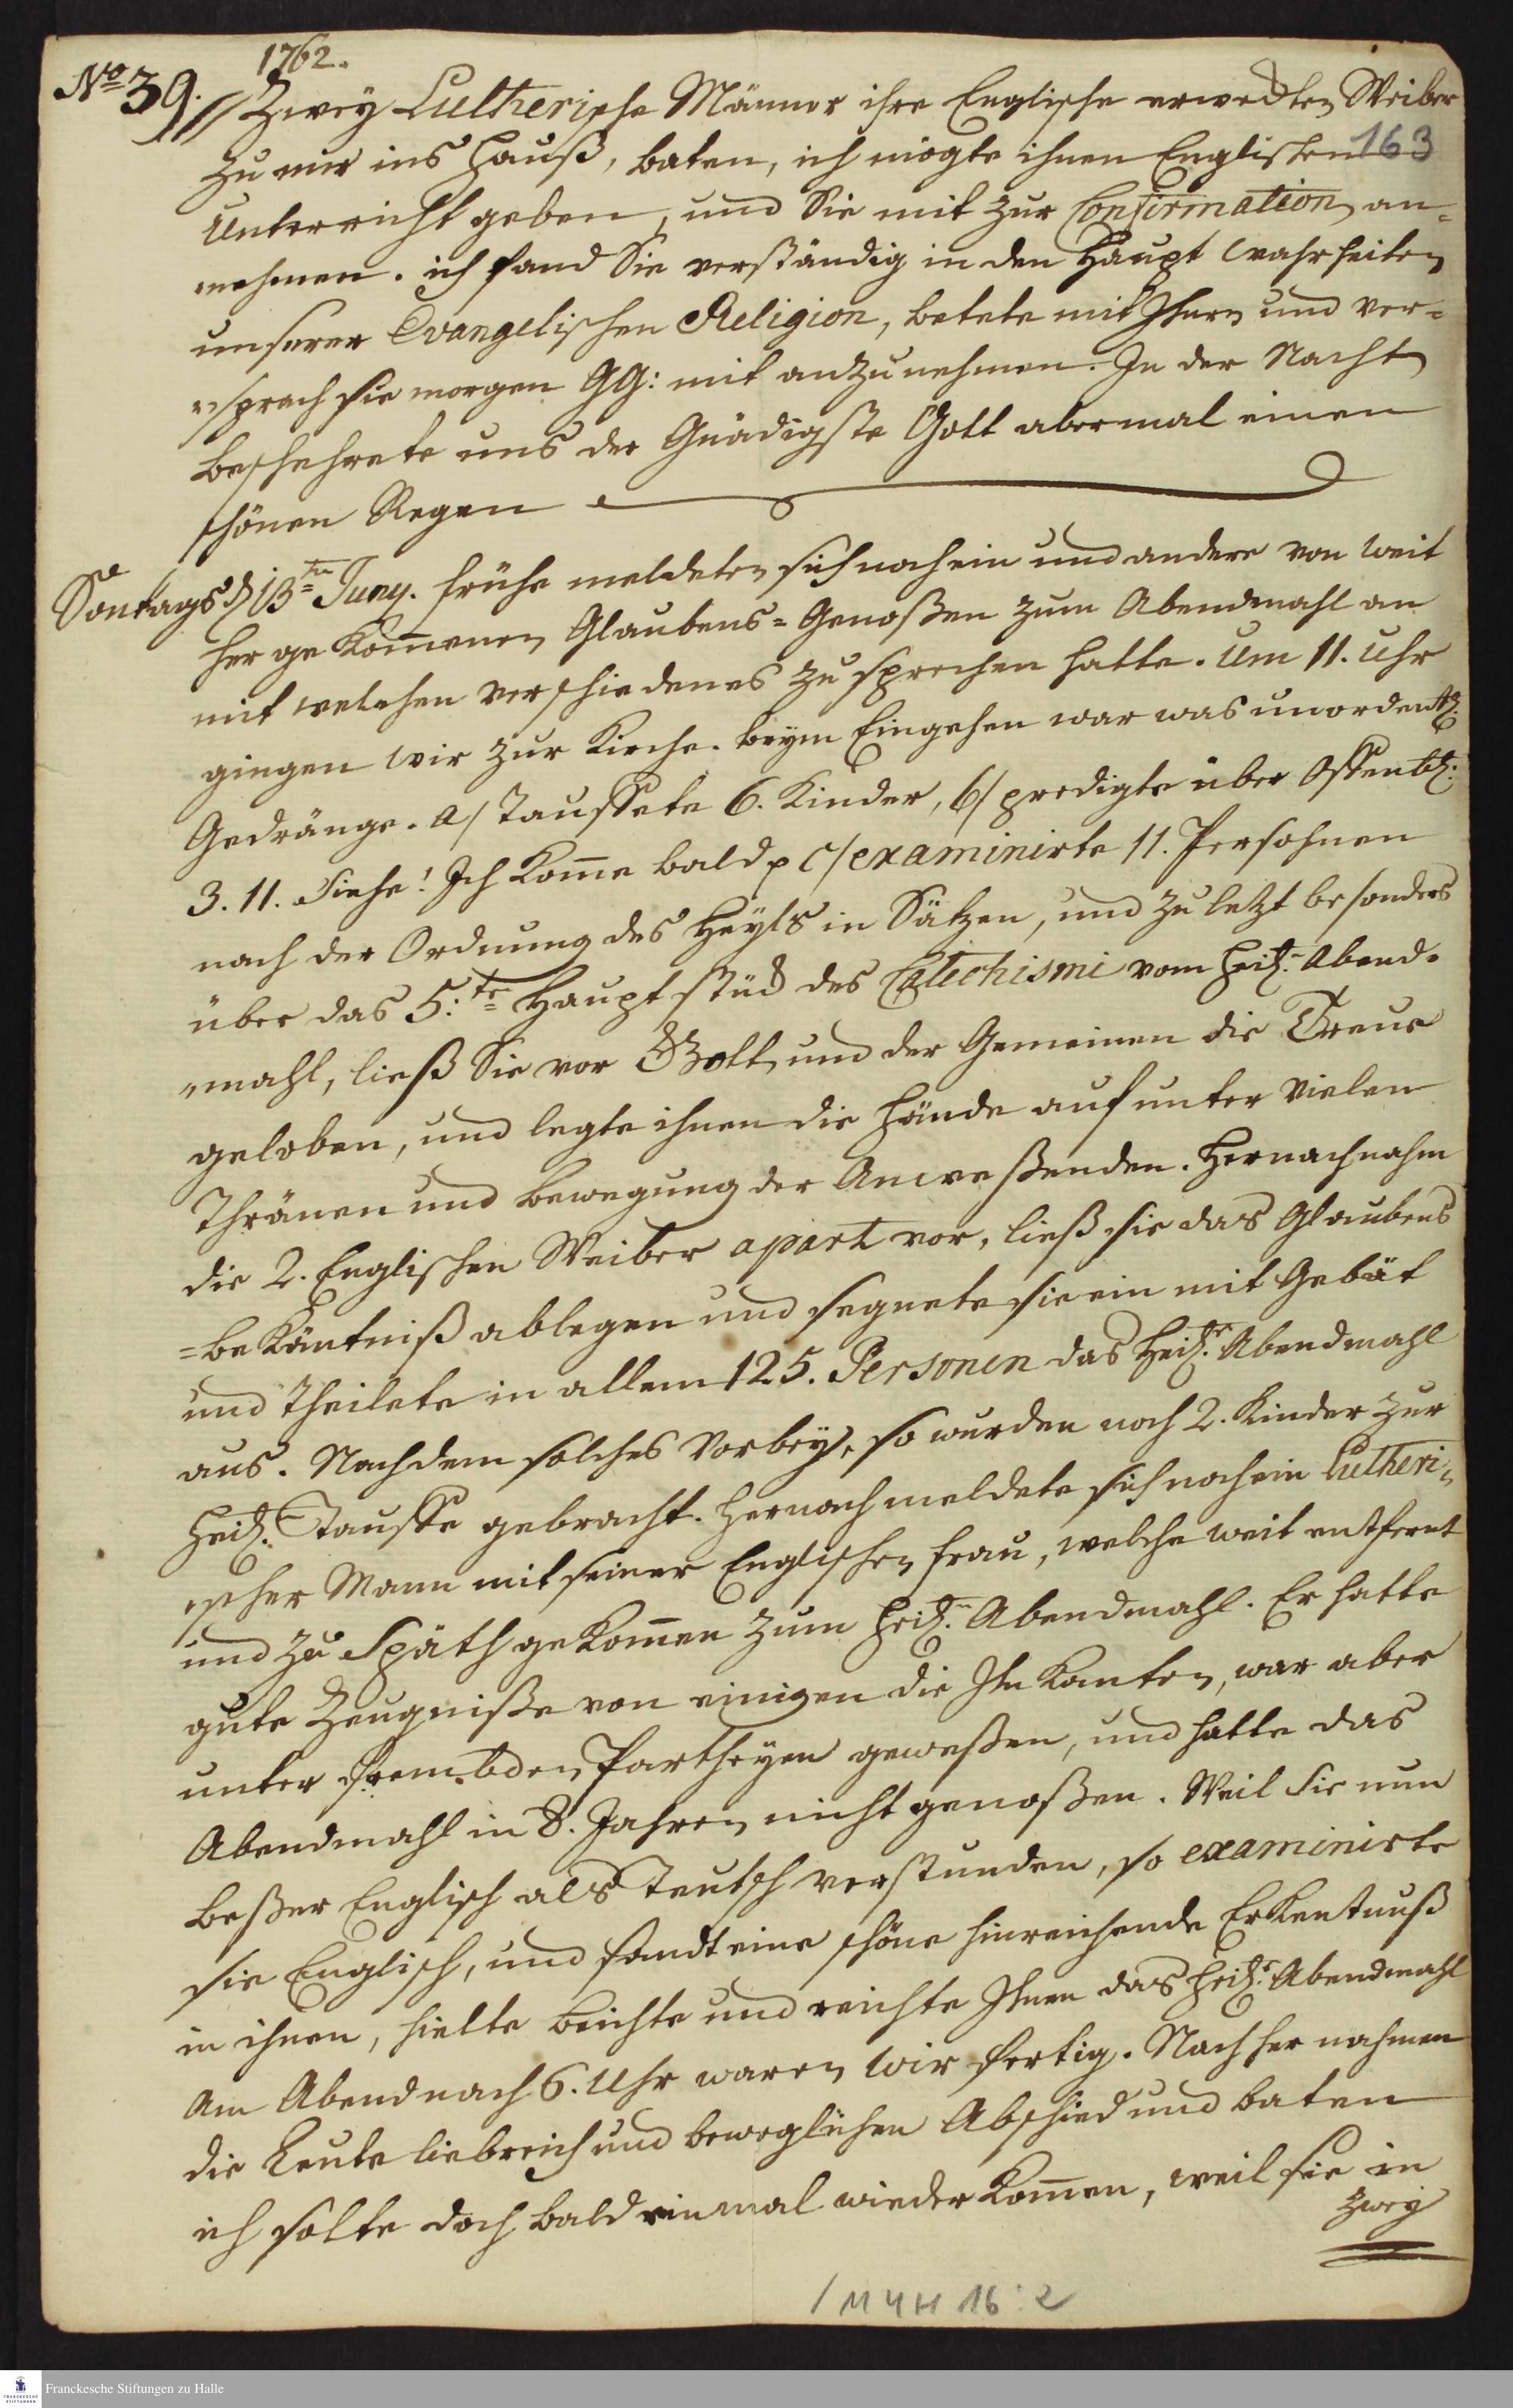 1762.
No 39.
Zwey Lutherische Männer ihre Englische erweckten Weiber
163
zu mir ins Hauß, baten, ich mögte ihnen Englischen
Unterricht geben, und Sie mit zur Confirmation an-
nehmen. ich fand Sie verständig in den Haupt Wahrheiten
unserer Evangelischen Religion, betete mit Ihnen und ver-
sprach sie morgen GG: mit anzunehmen. In der Nacht
beschehrete uns der Gnädigste Gott abermal einen
schönen Regen
Sontags d 13ten Juny. frühe meldeten sich noch ein und andere von weit
her gekom̅enen Glaubens-Genoßen zum Abendmahl an
mit welchen verschiedenes zu sprechen hatte. Um 11. Uhr
gingen wir zur Kirche. beym Eingehen war was unordentl:
Gedränge. a/ Tauffete 6. Kinder, b/ predigte über Offenb:
3. 11. Siehe! Ich kom̅e bald p c/ examinirte 11. Persohnen
nach der Ordnung des Heyls in Sätzen, und zuletzt besonders
über das 5:te Hauptstück des Catechismi vom Heil: Abend-
mahl, ließ Sie vor Gott und der Gemeinen die Treue
geloben, und legte ihnen die Hände auf unter vielen
Thränen und Bewegung der Anweßenden. Hernach nahm
die 2. Englischen Weiber apart vor, ließ sie das Glaubens
=bekäntniß ablegen und segnete sie ein mit Gebät
und theilete in allem 125. Personen das Heil: Abendmahl
aus. Nachdem solches vorbey, so wurden noch 2. Kinder zur
Heil: Tauffe gebracht. Hernach meldete sich noch ein Lutheri-
scher Mann mit seiner Englischen Frau, welche weit entfernt
und zu Späth gekom̅en zum Heil: Abendmahl. Er hatte
gute Zeugniße von einigen die Ihn kanten, war aber
unter frembden Partheyen geweßen, und hatte das
Abendmahl in 8. Jahren nicht genoßen. Weil Sie nun
beßer Englisch als Teutsch verstunden, so examinirte
sie Englisch, und fandt eine schöne hinreichende Erkentnuß
in ihnen, hielte Beichte und reichte Ihnen das Heil: Abendmahl
Am Abend nach 6. Uhr waren wir fertig. Nachher nahmen
die Leute liebreich und beweglichen Abschied und baten
ich solte doch bald einmal wieder kom̅en, weil sie in
zwey
1 M 4 H 16 : 2
Franckesche Stiftungen zu Halle
FRANCKESCHE STIFTUNGEN